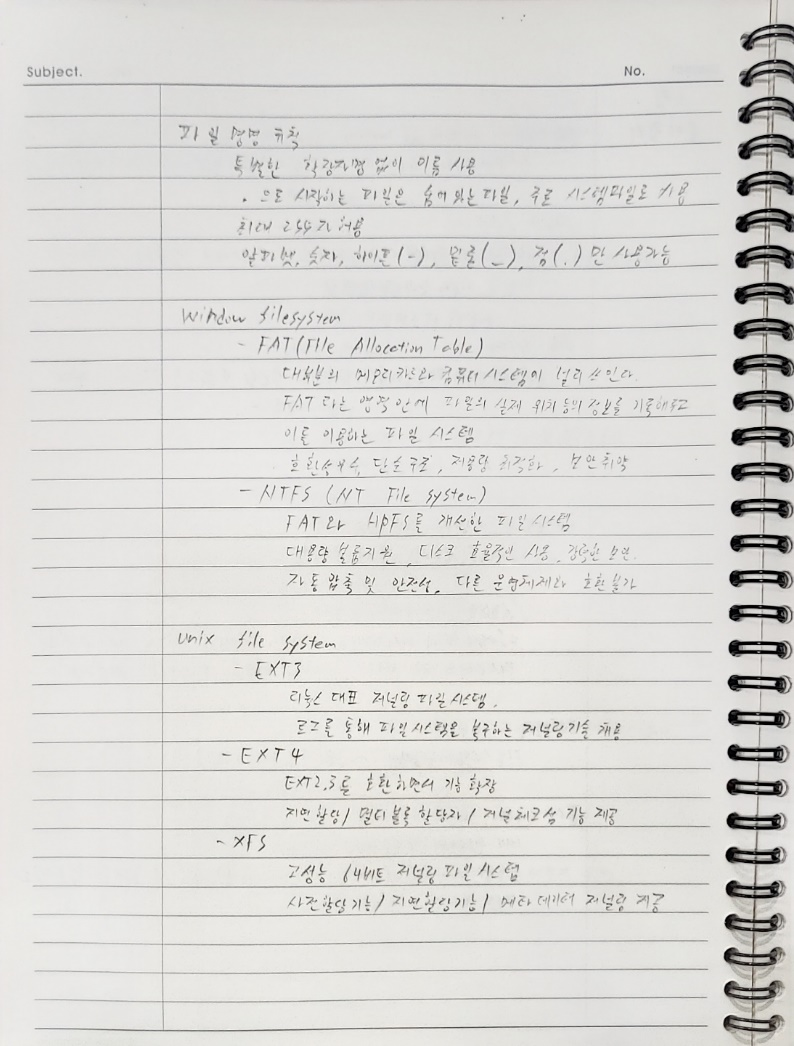 Subject.
No.
파일 명명 규칙
특별한 확장자명 없이 이름 사용
. 으로 시작하는 파일은 숨어 있는 파일, 주로 시스템파일로 사용
최대 255자 허용
알파벳, 숫자, 하이픈(-), 밑줄(_), 점(.) 만 사용가능
Window filesystem
- FAT(File Allocation Table)
대부분의 메모리카드와 컴퓨터 시스템이 널리 쓰인다.
FAT 라는 영역 안에 파일의 실제 위치 등의 정보를 기록해두고
이를 이용하는 파일 시스템
호환성우수, 단순구조, 저용량 최적화, 보안취약
- NTFS (NT File System)
FAT와 HPFS를 개선한 파일시스템
대용량 볼륨지원, 디스크 효율적인 사용, 강력한 보안.
자동압축 및 안전성, 다른 운영체제와 호환불가
Unix file system
- EXT3
리눅스 대표 저널링 파일시스템.
로그를 통해 파일시스템을 복구하는 저널링기술 채용
- EXT4
EXT2,3를 호환하면서 기능 확장
지연할당 / 멀티블록 할당자 / 저널체크섬 기능 제공
- XFS
고성능 64비트 저널링 파일시스템
사전할당기능 / 지연할당기능 / 메타데이터 저널링 제공